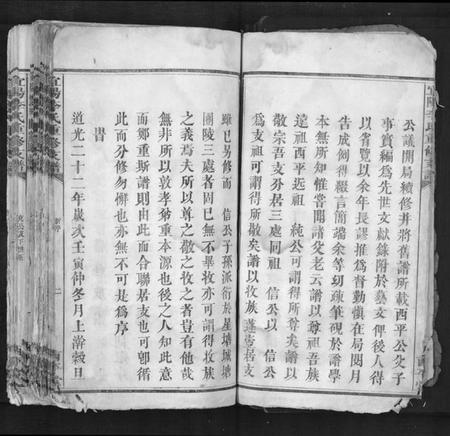 公議開局續修并將舊譜所載西平公父子
事實編為先世文獻錄附於藝文俾後人得
以省覽以余年長謬推為督勷愼在局閱月
告成例得綴言簡端余等幼疎筆硯於譜學
本無所知惟嘗聞諸父老云譜以尊祖吾族
遠祖西平遠祖 純公可謂得所尊矣譜以
敬宗吾支外居三處同祖 信公以 信公
為支祖可謂得所敬矣譜以收族遂昔居支
雖已另修而 信公子孫派衍於星塘城塘
團陵三處者固已無不畢收亦可謂得收族
之義焉夫所以尊之敬之收之者豈有他哉
無非所以敦孝弟重本源也後之人知此意
而鄭重斯譜則由此而合聯居支也可卽循
此而分修勿懈也亦無不可是為序
旹
道光二十二年歲次壬寅仲冬月上澣穀旦
宜陽李氏重修支譜
新序
二